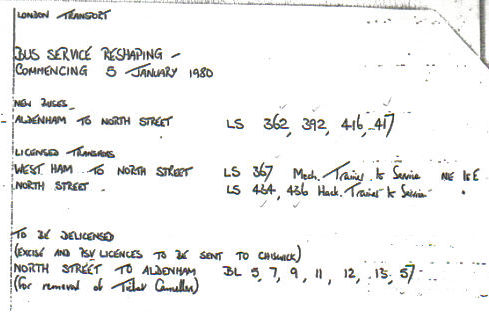 LONDON TRANSPORT
BUS SERVICE RESHAPING -
COMMENCING 5 JANUARY 1980
NEW BUSES -
ALDENHAM TO NORTH STREET LS 362, 392, 416, 417
LICENSED TRANSFERS
WEST HAM TO NORTH STREET LS 367 Mech. Trainer to Service
NORTH STREET - LS 434, 436 Mech. Trainer to Service
TO BE DELICENSED
(EXCISE AND PSV LICENCES TO BE SENT TO CHISWICK)
NORTH STREET TO ALDENHAM BL 5, 7, 9, 11, 12, 13, 57
(For removal of Ticket Canceller)